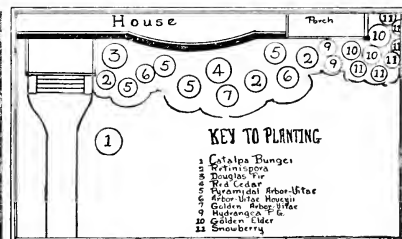 House
Porch
11
11
10
11
3
5
5
9
10
10
2
5
6
4
2
6
9
11
11
11
5
7
2
1
KEY TO PLANTING
1 Catalpa Bungei
2 Retinispora
3 Douglas Fir
4 Red Cedar
5 Pyramidal Arbor-Vitae
6 Arbor-Vitae Hoveyii
7 Golden Arbor-Vitae
9 Hydrangea P.G.
10 Golden Elder
11 Snowberry